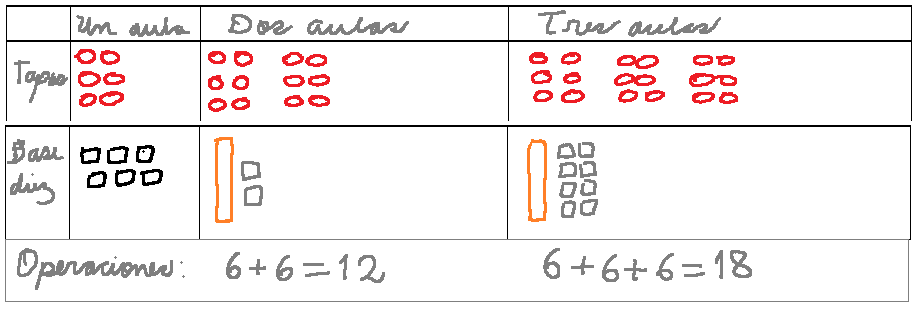 Un aula Dos aulas Tres aulas
Tapas
Base
diez
Operaciones: 6+6=12 6+6+6=18